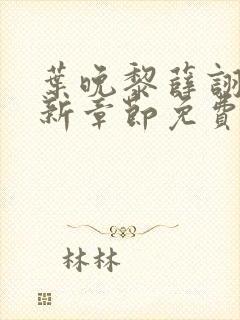 葉晚黎薛詡
新章節免費
林林